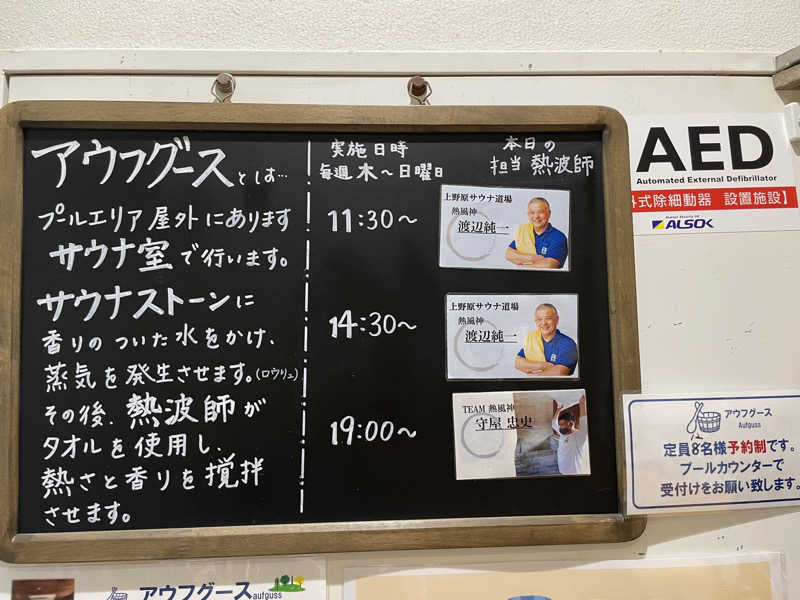 アウフグースとは…
プールエリア屋外にあります
サウナ室で行います。
サウナストーンに
香りのついた水をかけ、
蒸気を発生させます。(ロウリュ)
その後、熱波師が
タオルを使用し、
熱さと香りを撹拌
させます。
実施日時
毎週木～日曜日
11:30～
14:30～
19:00～
本日の
担当熱波師
上野原サウナ道場
熱風神
渡辺純一
上野原サウナ道場
熱風神
渡辺純一
TEAM 熱風神
守屋 忠史
AED
Automated External Defibrillator
外式除細動器 設置施設】
ALSOK
アウフグース
Aufguss
定員8名様予約制です。
プールカウンターで
受付けをお願い致します。
アウフグース aufguss